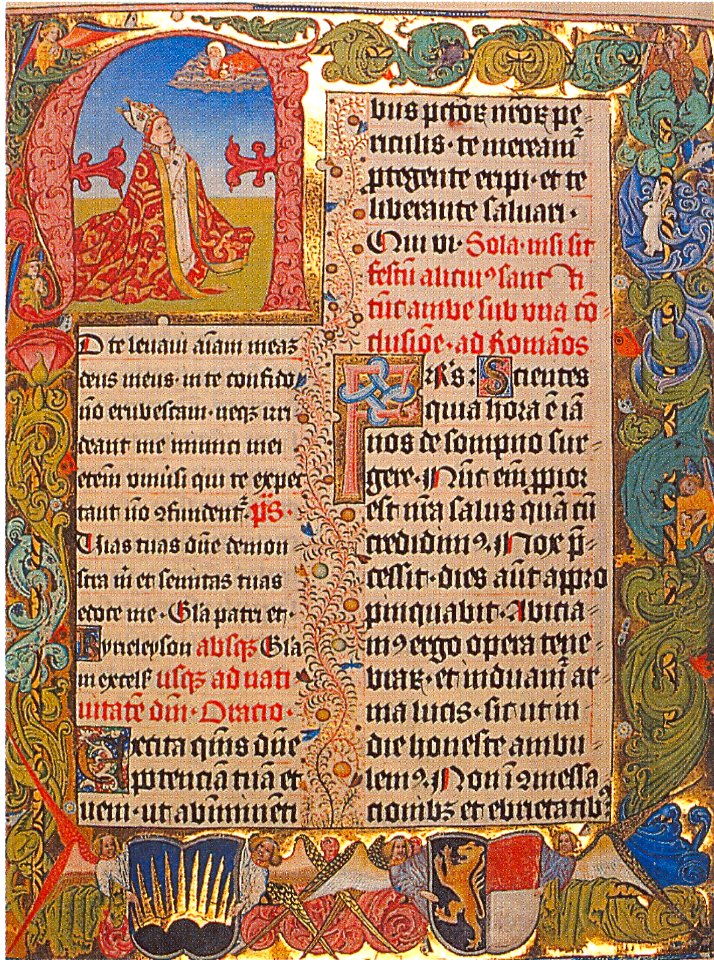 D te levavi aīam meaz
deus meus · in te confido
nō erubescam · neqz irri
deant me inimici mei
etem univsi qui te expec
tant nō ꝯfundentᷣ. ps̄ ·
Vias tuas dn̄e demon
stra m̄ et semitas tuas
edoce me · Gl̄a patri et ·
Kyrieleyson absqz Gl̄a
in excelſ usqz ad nati
vitatē dnī · Oratio ·
Excita q̄ms dn̄e
potenciā tuā et
veni · ut ab iminenti
bus pctōꝝ nr̄oꝝ pe-
riculis · te mereamᷣ
ꝓtegente eripi · et te
liberante salvari ·
Qui vi · Sola · nisi sit
festū alicuiꝰ sanc ti
tūc ambe sub una cō-
clusiōe · ad Romāos
Fr̄s : Scientes
quia hora ē iā
nos de sompno sur-
gere · Nūc eim̄ ꝓpior
est nr̄a salus quā cū
credidimꝰ. Nox p̄-
cessit · dies aūt appro
pinquabit · Abicia-
mꝰ ergo opera tene-
braꝝ · et induamᷣ ar
ma lucis · sic ut in
die honeste ambu-
lemꝰ. Non ī ꝯmessa
cionibꝫ et ebrietatibꝫ